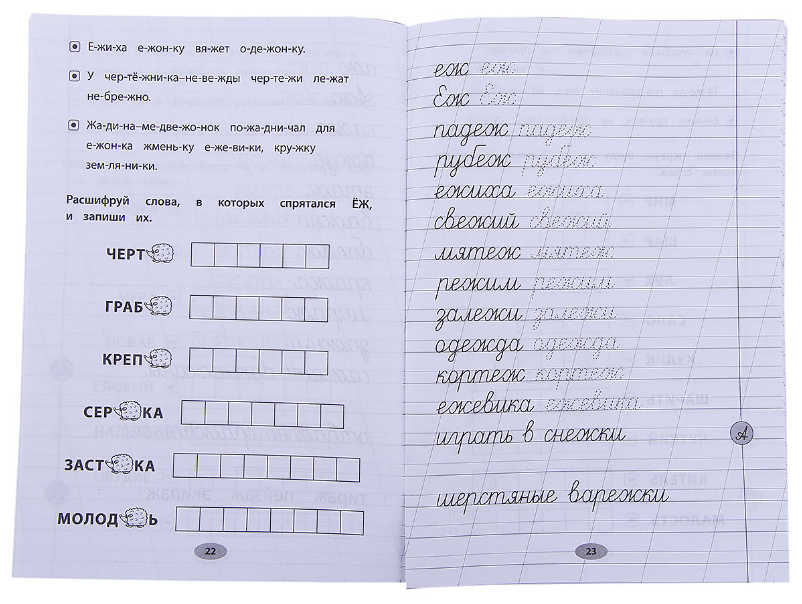 Е-жи-ха е-жон-ку вя-жет о-де-жон-ку.
У чер-тё-жни-ка–не-ве-жды чер-те-жи ле-жат
не-бре-жно.
Жа-ди-на–ме-две-жо-нок по-жа-дни-чал для
е-жон-ка жмень-ку е-же-ви-ки, кру-жку
зем-ля-ни-ки.
Расшифруй слова, в которых спрятался ЁЖ,
и запиши их.
ЧЕРТ
ГРАБ
КРЕП
СЕР КА
ЗАСТ КА
МОЛОД Ь
22
еж еж
Ёж Ёж
падеж падеж
рубеж рубеж
ежиха ежиха
свежий свежий
мятеж мятеж
режим режим
залежи залежи
одежда одежда
кортеж кортеж
ежевика ежевика
играть в снежки
А
шерстяные варежки
23